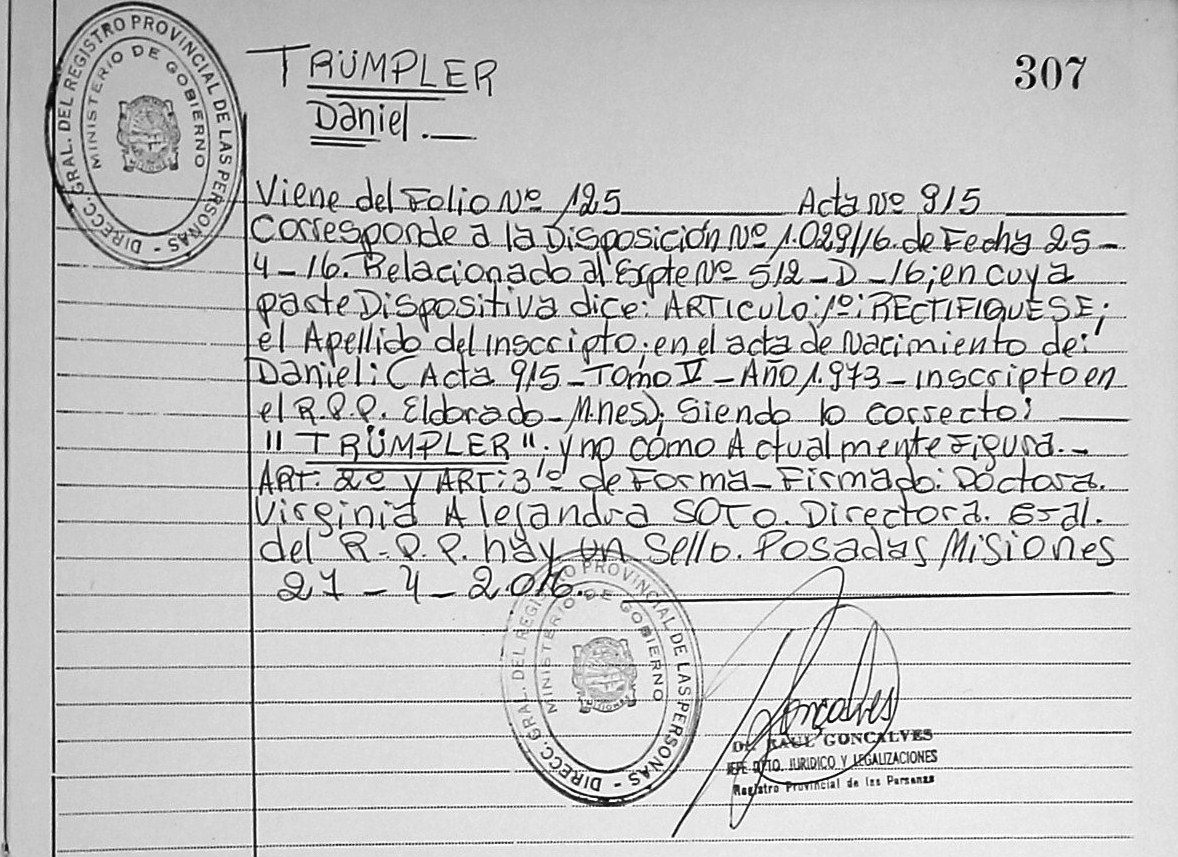 DIRECC. GRAL. DEL REGISTRO PROVINCIAL DE LAS PERSONAS -
MINISTERIO DE GOBIERNO
TRÜMPLER
Daniel.—
307
Viene del Folio Nº 125 Acta Nº 915
Corresponde a la Disposición Nº 1.029/16. de Fecha 25-
4-16. Relacionado al Expte Nº 512-D-16; en cuya
parte Dispositiva dice: ARTICULO: 1º: RECTIFIQUESE;
el Apellido del inscripto; en el acta de Nacimiento de:
Daniel: (Acta 915-Tomo V-Año 1.973-inscripto en
el R.P.P. Eldorado-M.nes); Siendo lo correcto:
"TRÜMPLER"; y no como Actualmente Figura.-
ART: 2º y ART: 3º de Forma-Firmado: Doctora.
Virginia Alejandra SOTO. Directora. Gral.
del R.P.P. hay un Sello. Posadas Misiones
27-4-2.016.
DIRECC. GRAL. DEL REGISTRO PROVINCIAL DE LAS PERSONAS -
MINISTERIO DE GOBIERNO
Goncalves
Dr. RAUL GONCALVES
JEFE DPTO. JURIDICO Y LEGALIZACIONES
Registro Provincial de las Personas